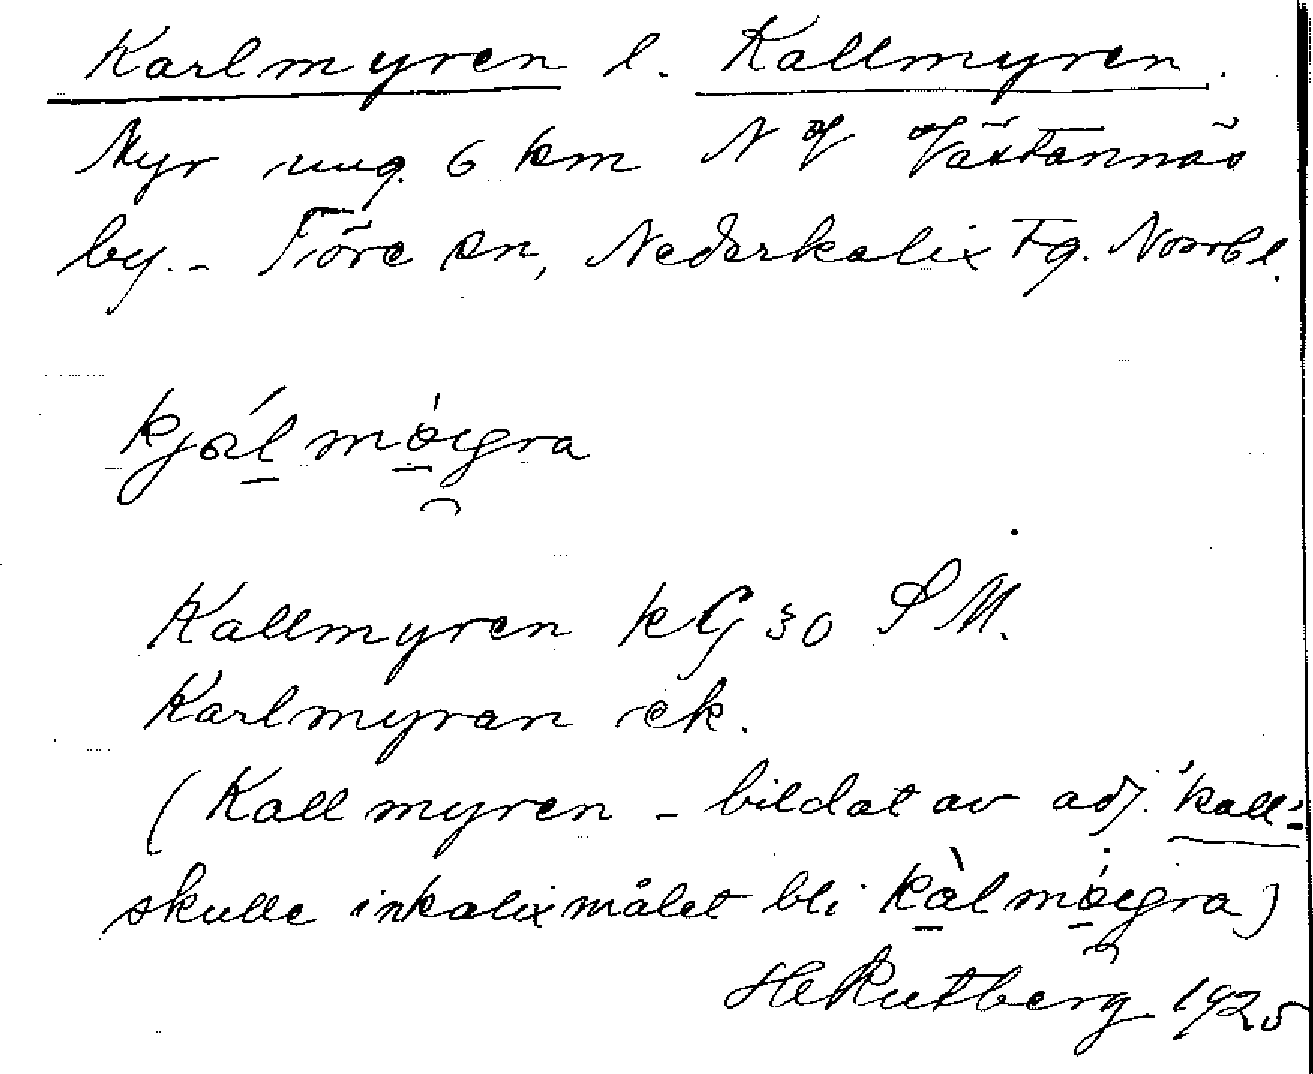 Karlmyren l. Kallmyren.
Myr ung. 6 km N of Västannäs
by. - Töre sn, Nederkalix Tg. Norrb l.
kjǻl møigra
Kallmyren kG 30 S M.
Karlmyran ek.
(Kallmyren - bildat av adj. "kall"
skulle i nkalixmålet bli kàlmøigra)
HcRutberg 1925